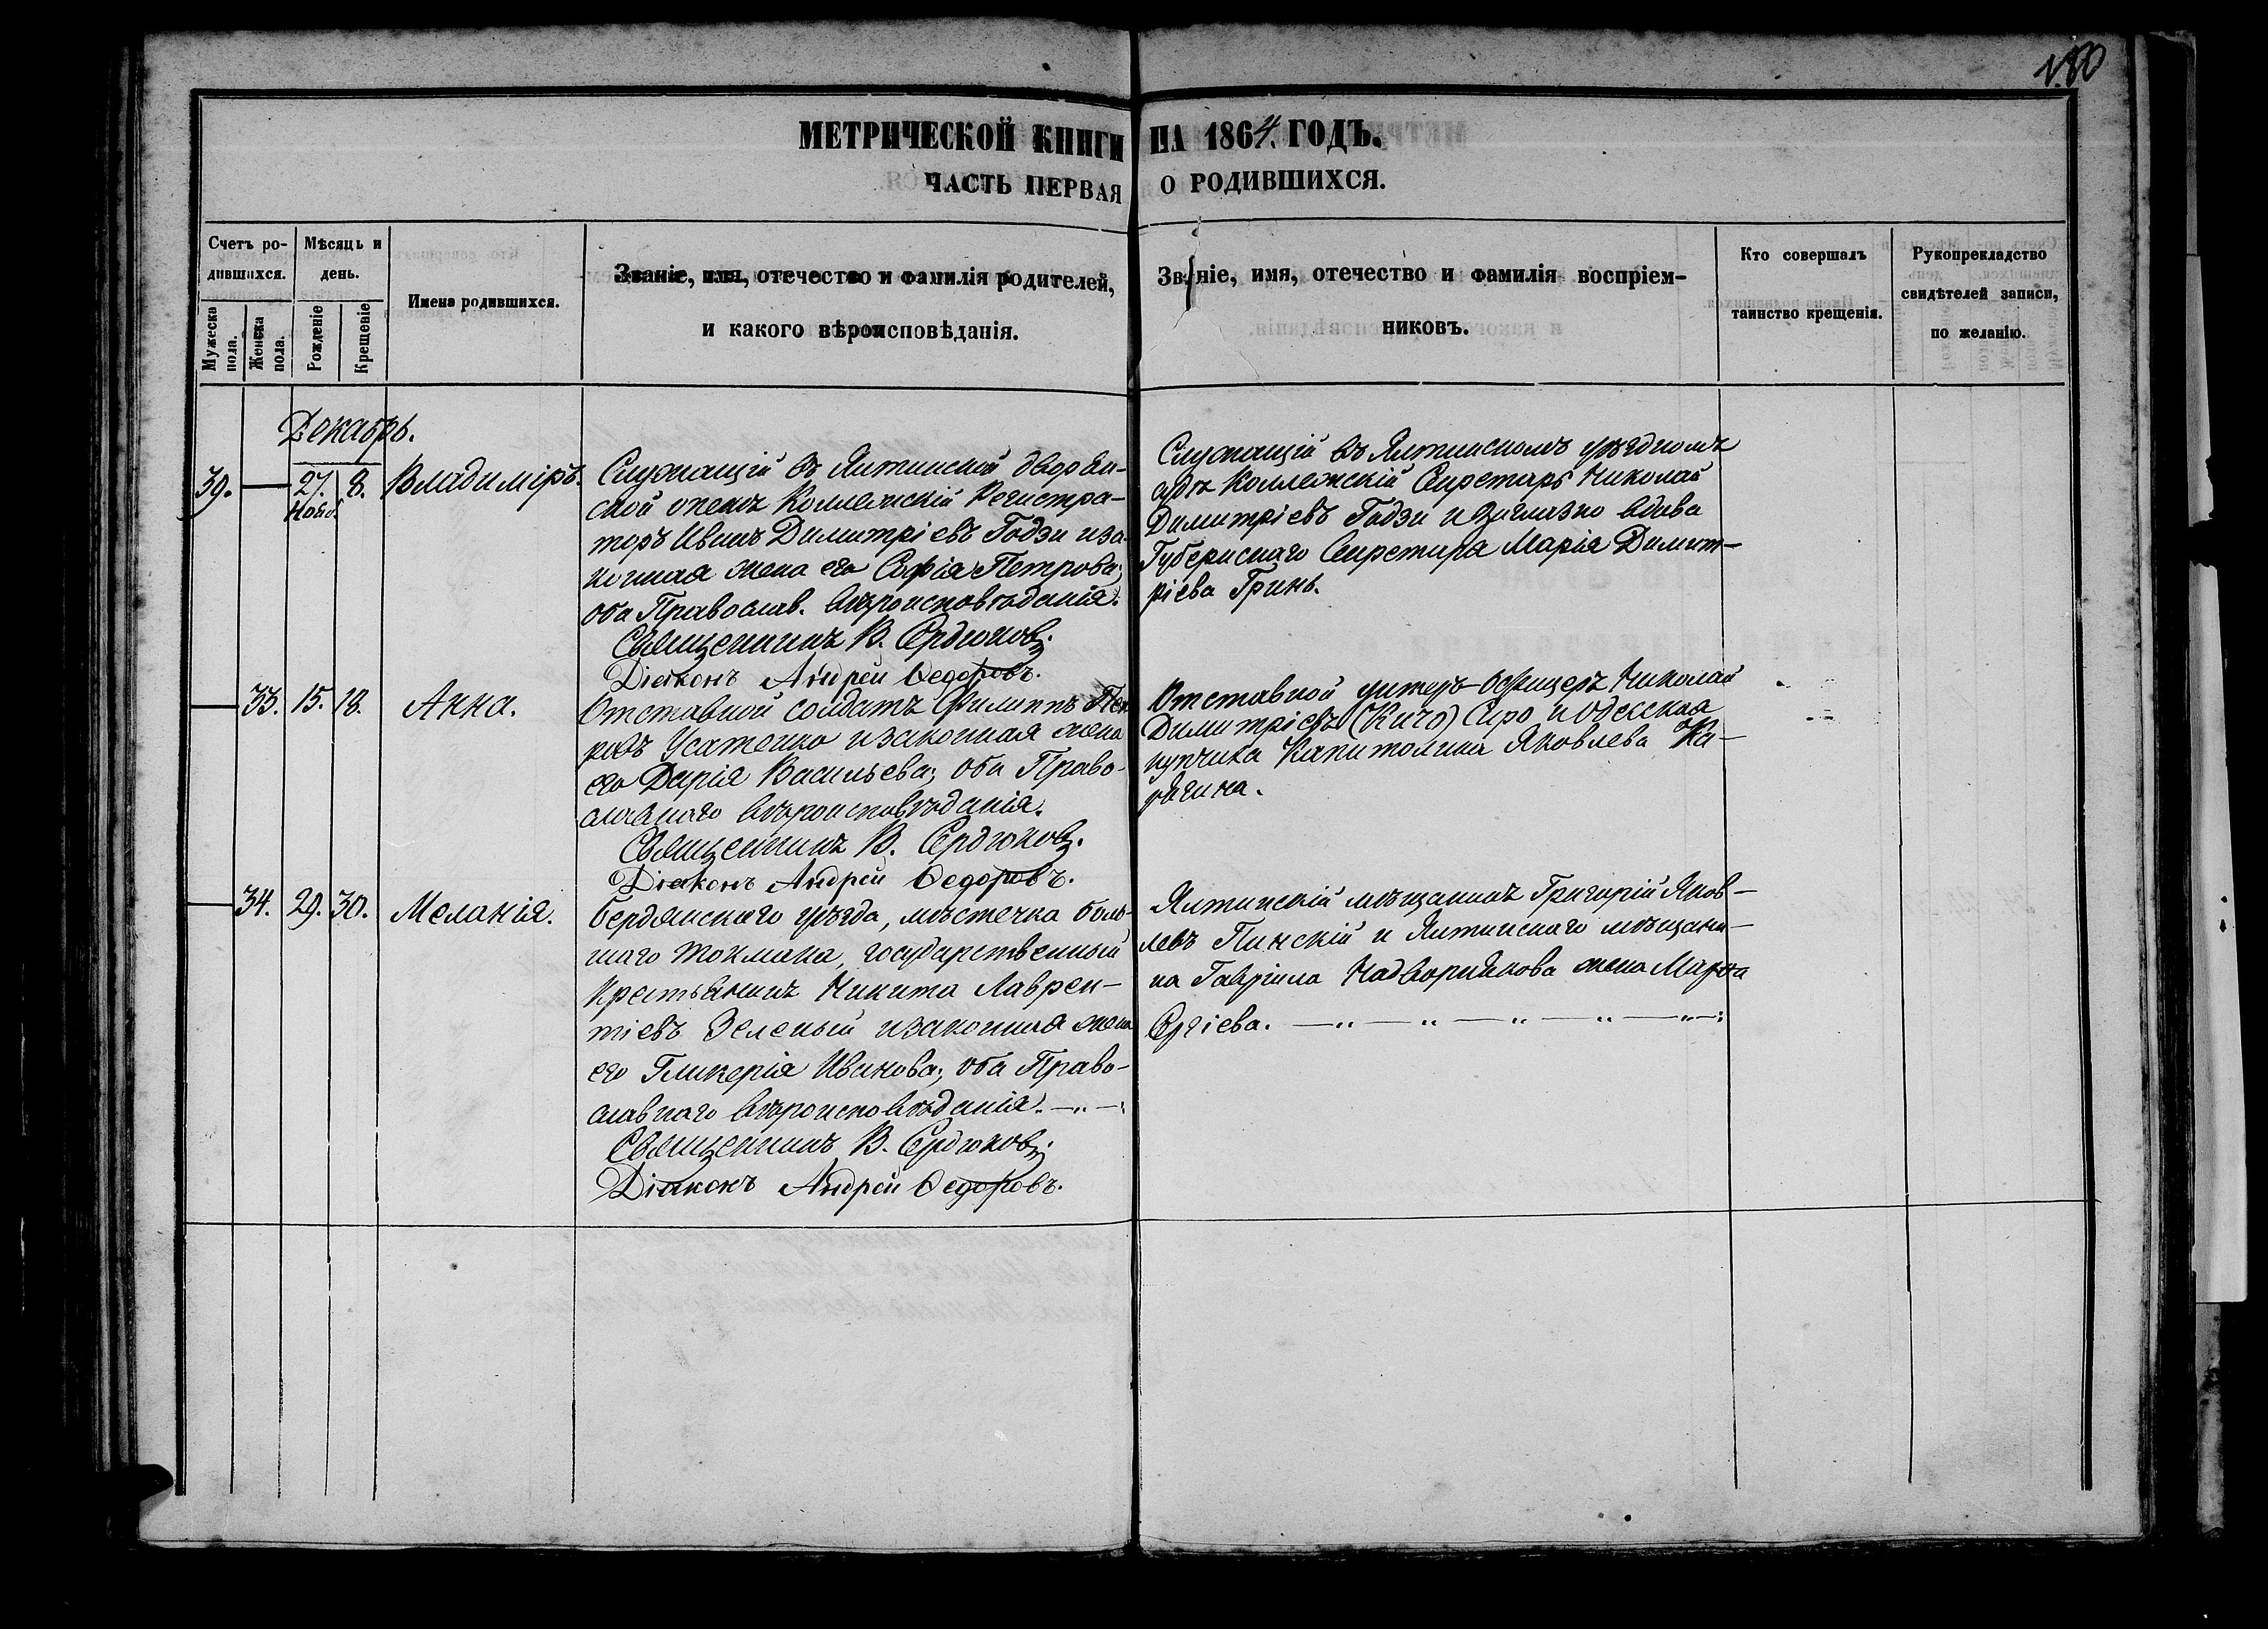 180
МЕТРИЧЕСКОЙ КНИГИ НА 1864. ГОДЪ.
ЧАСТЬ ПЕРВАЯ О РОДИВШИХСЯ.
Счетъ ро-
дившихся.
Мужеска
пола.
Женска
пола.
Мѣсяць и
день.
Рожденіе
Крещеніе
Имена родившихся.
Званіе, имя, отечество и фамилія родителей,
и какого вѣроисповѣданія.
Званіе, имя, отечество и фамилія воспріем-
никовъ.
Кто совершалъ
таинство крещенія.
Рукоприкладство
свидѣтелей записи,
по желанію.
Декабрь.
39. — 27. Нояб. 8. Владиміръ.
Служащій въ Ялтинской дворян-
ской опекѣ Коллежскій Регистра-
торъ Иванъ Димитріевъ Годзи и за-
конная жена его Софія Петрова;
оба Православ. вѣроисповѣданія.
Священникъ В. Сердюковъ.
Діаконъ Андрей Ѳедоровъ.
Служащій въ Ялтинскомъ уѣздномъ
судѣ Коллежскій Секретарь Николай
Димитріевъ Годзи и заглазно вдова
Губернскаго Секретаря Марія Димит-
ріева Гринь.
— 33. 15. 18. Анна.
Отставной солдатъ Филиппъ Пет-
ровъ Усатенко и законная жена
его Дарія Васильева; оба Право-
славнаго вѣроисповѣданія.
Священникъ В. Сердюковъ.
Діаконъ Андрей Ѳедоровъ.
Отставной унтеръ-офицеръ Николай
Димитріевъ (Кичо) Спро и Одесская
купчиха Капитолина Яковлева Ка-
рягина.
— 34. 29. 30. Меланія.
Бердянскаго уѣзда, мѣстечка боль-
шаго Токмака, государственный
крестьянинъ Никита Лаврен-
тіевъ Зеленый и законная жена
его Гликерія Иванова; оба Право-
славнаго вѣроисповѣданія. —„—:
Священникъ В. Сердюковъ.
Діаконъ Андрей Ѳедоровъ.
Ялтинскій мѣщанинъ Григорій Яков-
левъ Пинскій и Ялтинскаго мѣщани-
на Гавріила Надворнякова жена Марѳа
Сергіева. —„—„—„—„—„—: